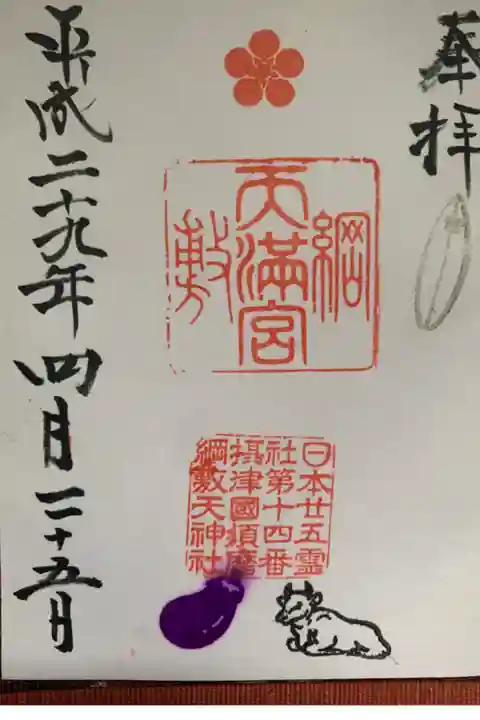 奉拝
綱敷天満宮
日本廿五霊
社第十四番
摂津國須磨
綱敷天神社
平成二十九年四月二十五日